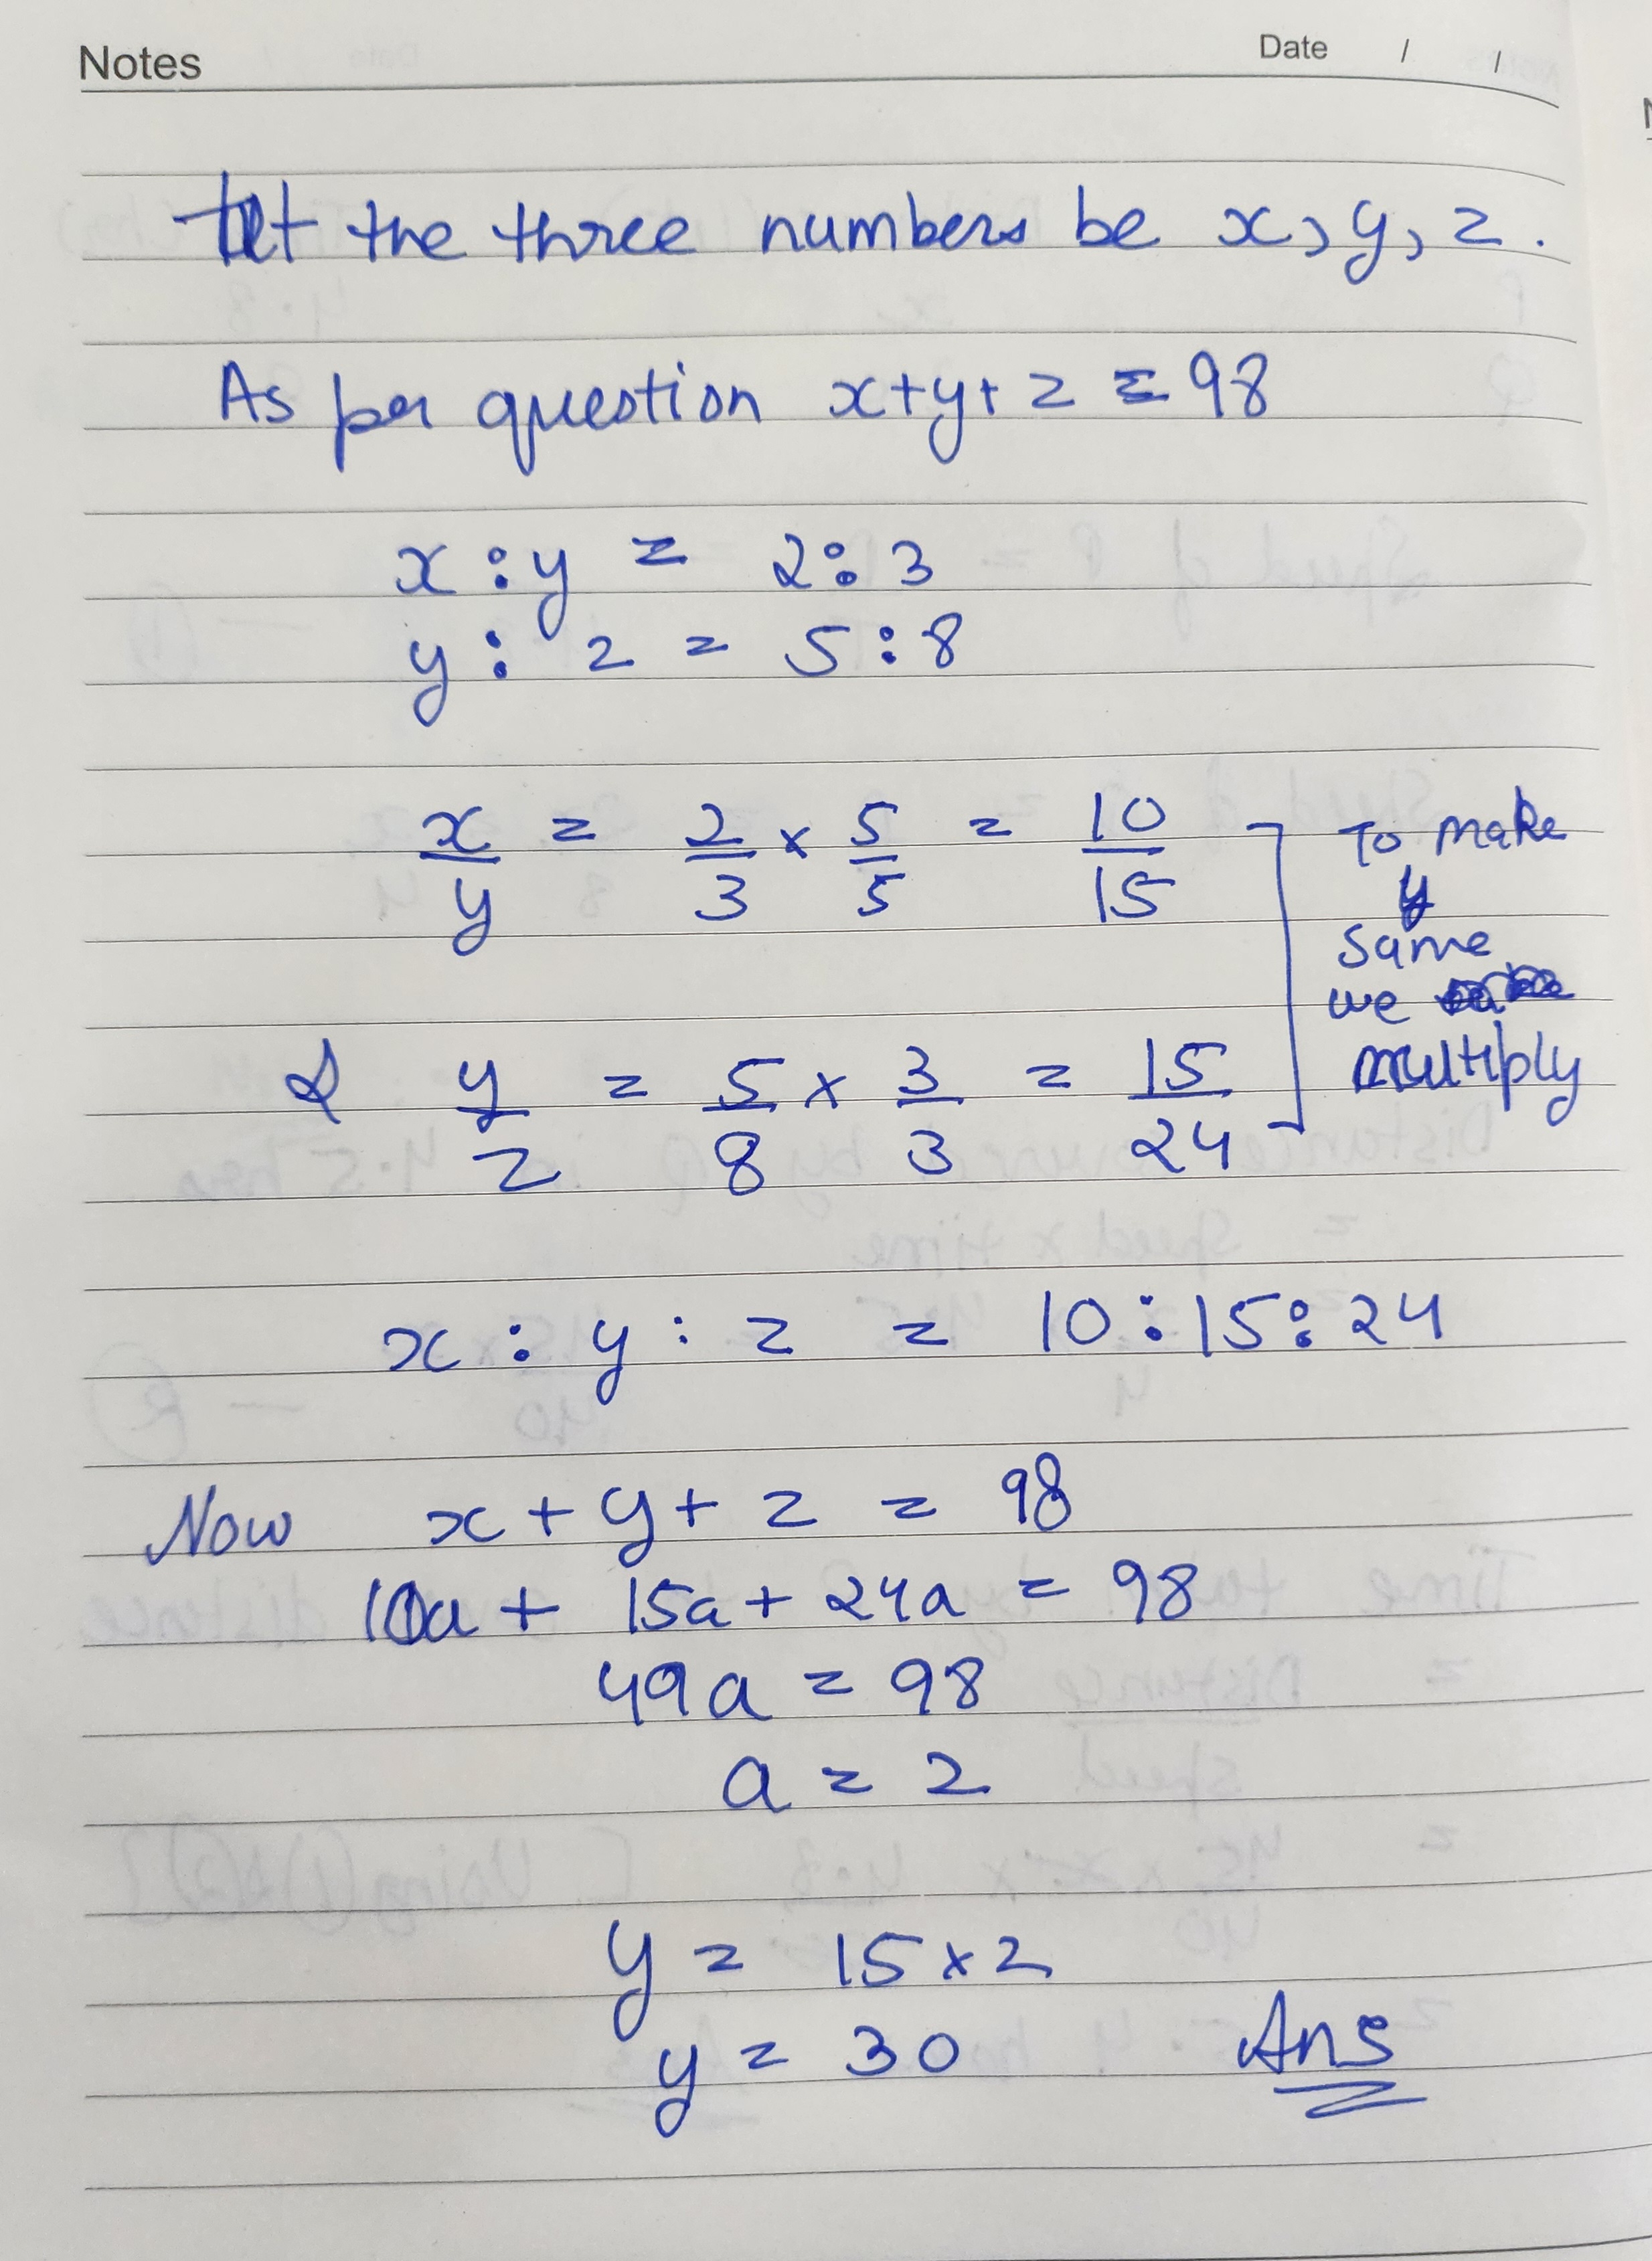 Notes
Date / /
Let the three numbers be x, y, z.
As per question x+y+z = 98
x : y = 2 : 3
y : z = 5 : 8
x/y = 2/3 × 5/5 = 10/15
To make
y
same
we
multiply
& y/z = 5/8 × 3/3 = 15/24
x : y : z = 10 : 15 : 24
Now x + y + z = 98
10a + 15a + 24a = 98
49a = 98
a = 2
y = 15 × 2
y = 30 Ans